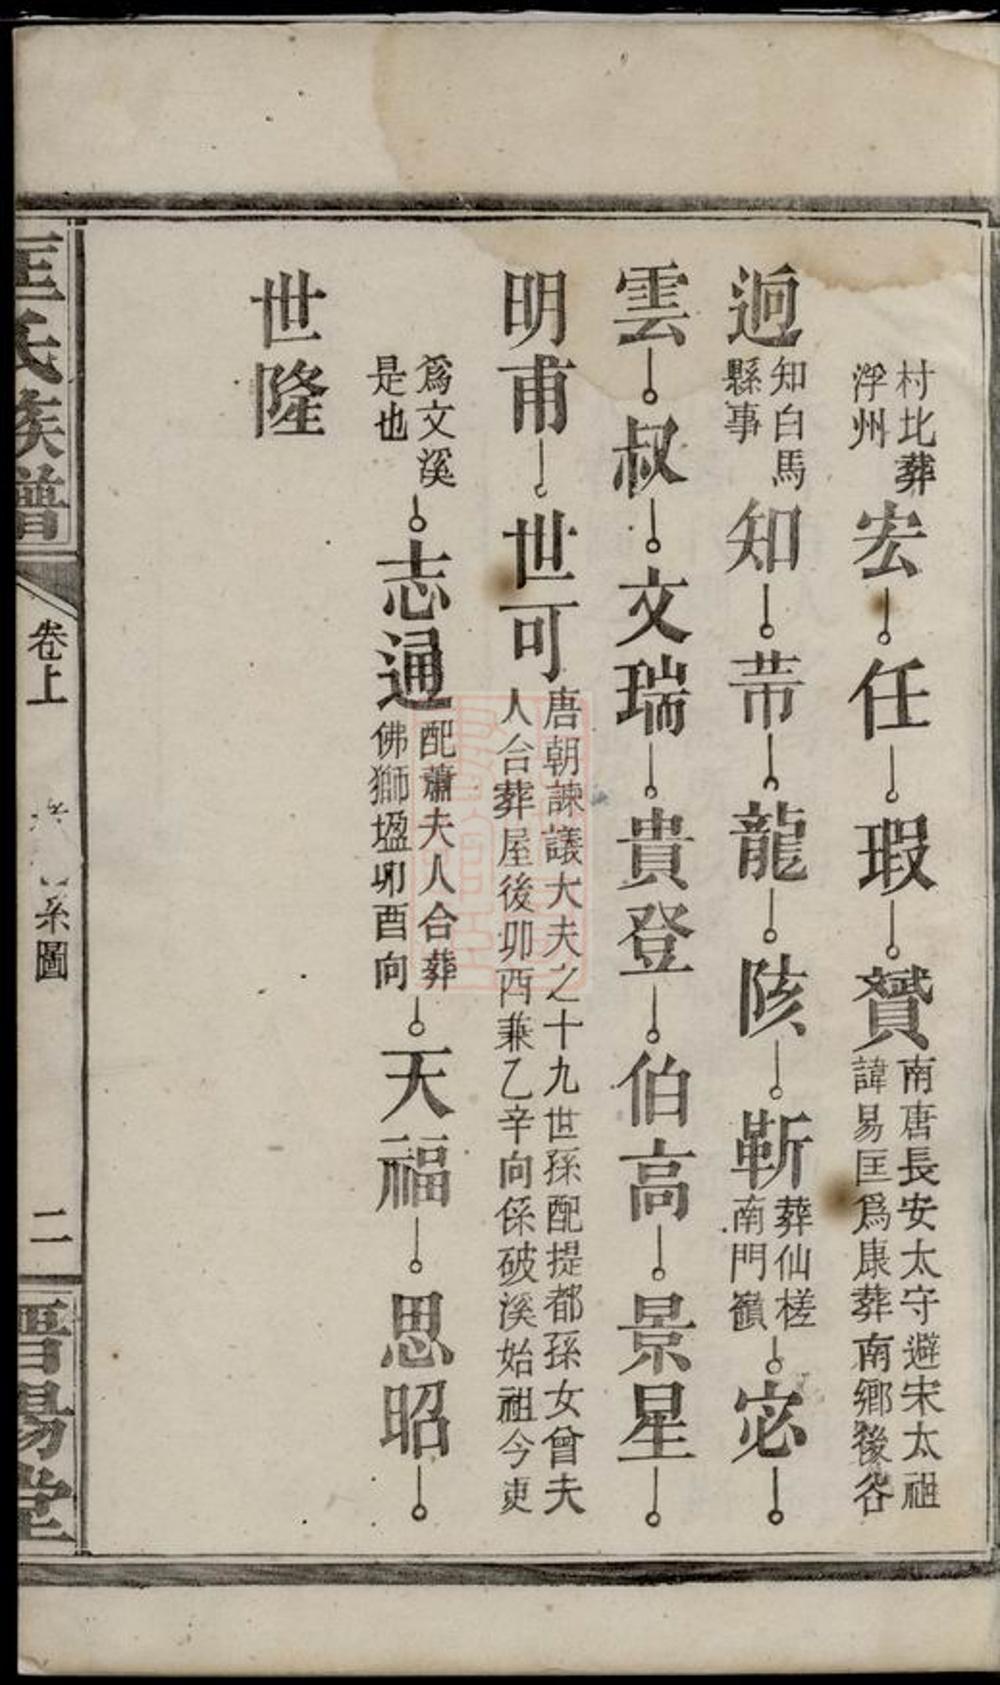 村北葬
浮州
宏
任
瑕
贇
南唐長安太守避宋太祖
諱易匡爲康葬南鄉後谷
逈
知白馬
縣事
知
芾
龍
陔
靳
葬仙槎
南門嶺
宓
雲
叔
文瑞
貴登
伯高
景星
明甫
世可
唐朝諫議大夫之十九世孫配提都孫女曾夫
人合葬屋後卯酉兼乙辛向係破溪始祖今更
爲文溪
是也
志通
配蕭夫人合葬
佛獅塭卯酉向
天福
思昭
世隆
匡氏族譜
卷上
系圖
二
晋陽堂